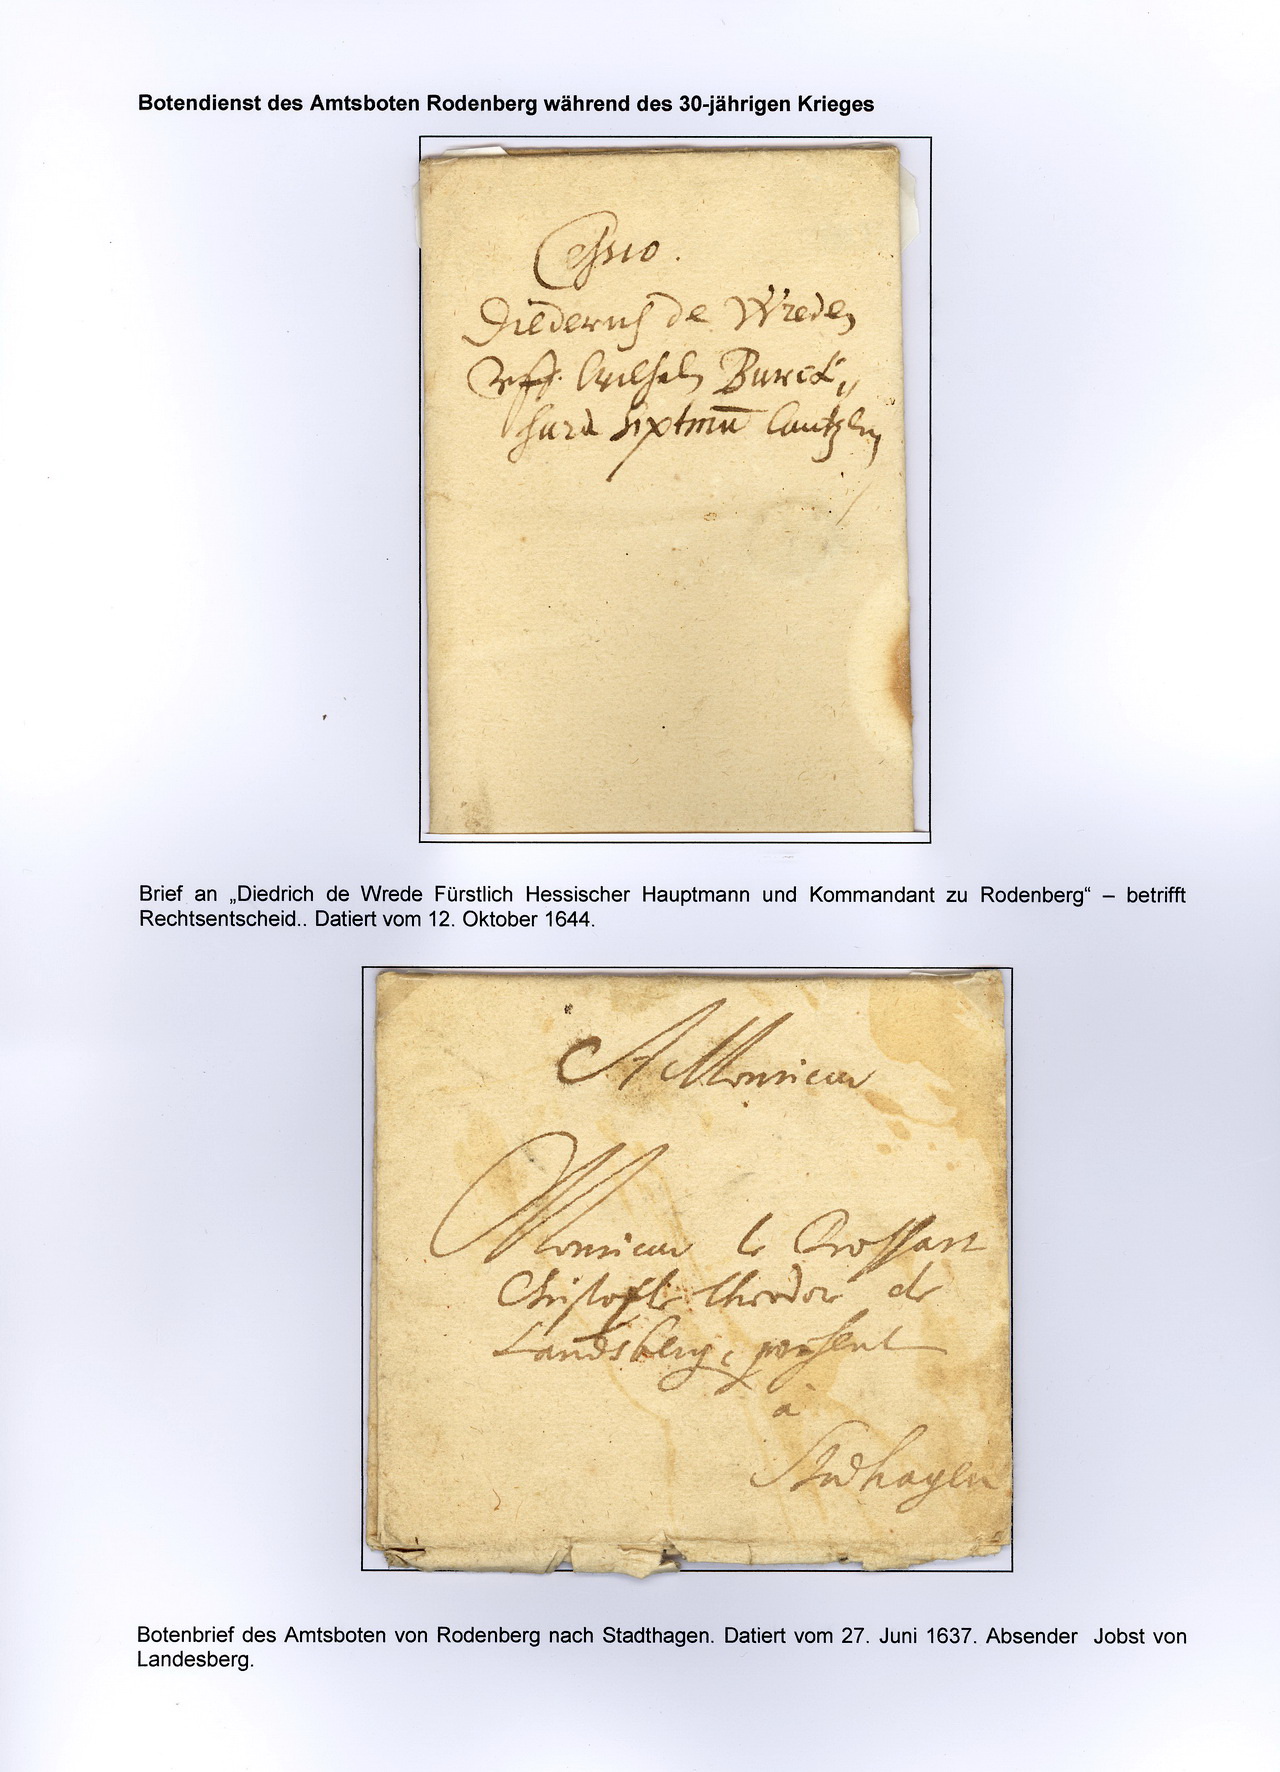 Botendienst des Amtsboten Rodenberg während des 30-jährigen Krieges
Cessio.
Diederich de Wreden
uff Wilhelm Burck„
hard Sixtinū Cantzlern
Brief an „Diedrich de Wrede Fürstlich Hessischer Hauptmann und Kommandant zu Rodenberg“ – betrifft
Rechtsentscheid.. Datiert vom 12. Oktober 1644.
A Monsieur
Monsieur le Drossart
Christofle Theodor de
Landsberg, present
à
Stadhagen
Botenbrief des Amtsboten von Rodenberg nach Stadthagen. Datiert vom 27. Juni 1637. Absender Jobst von
Landesberg.